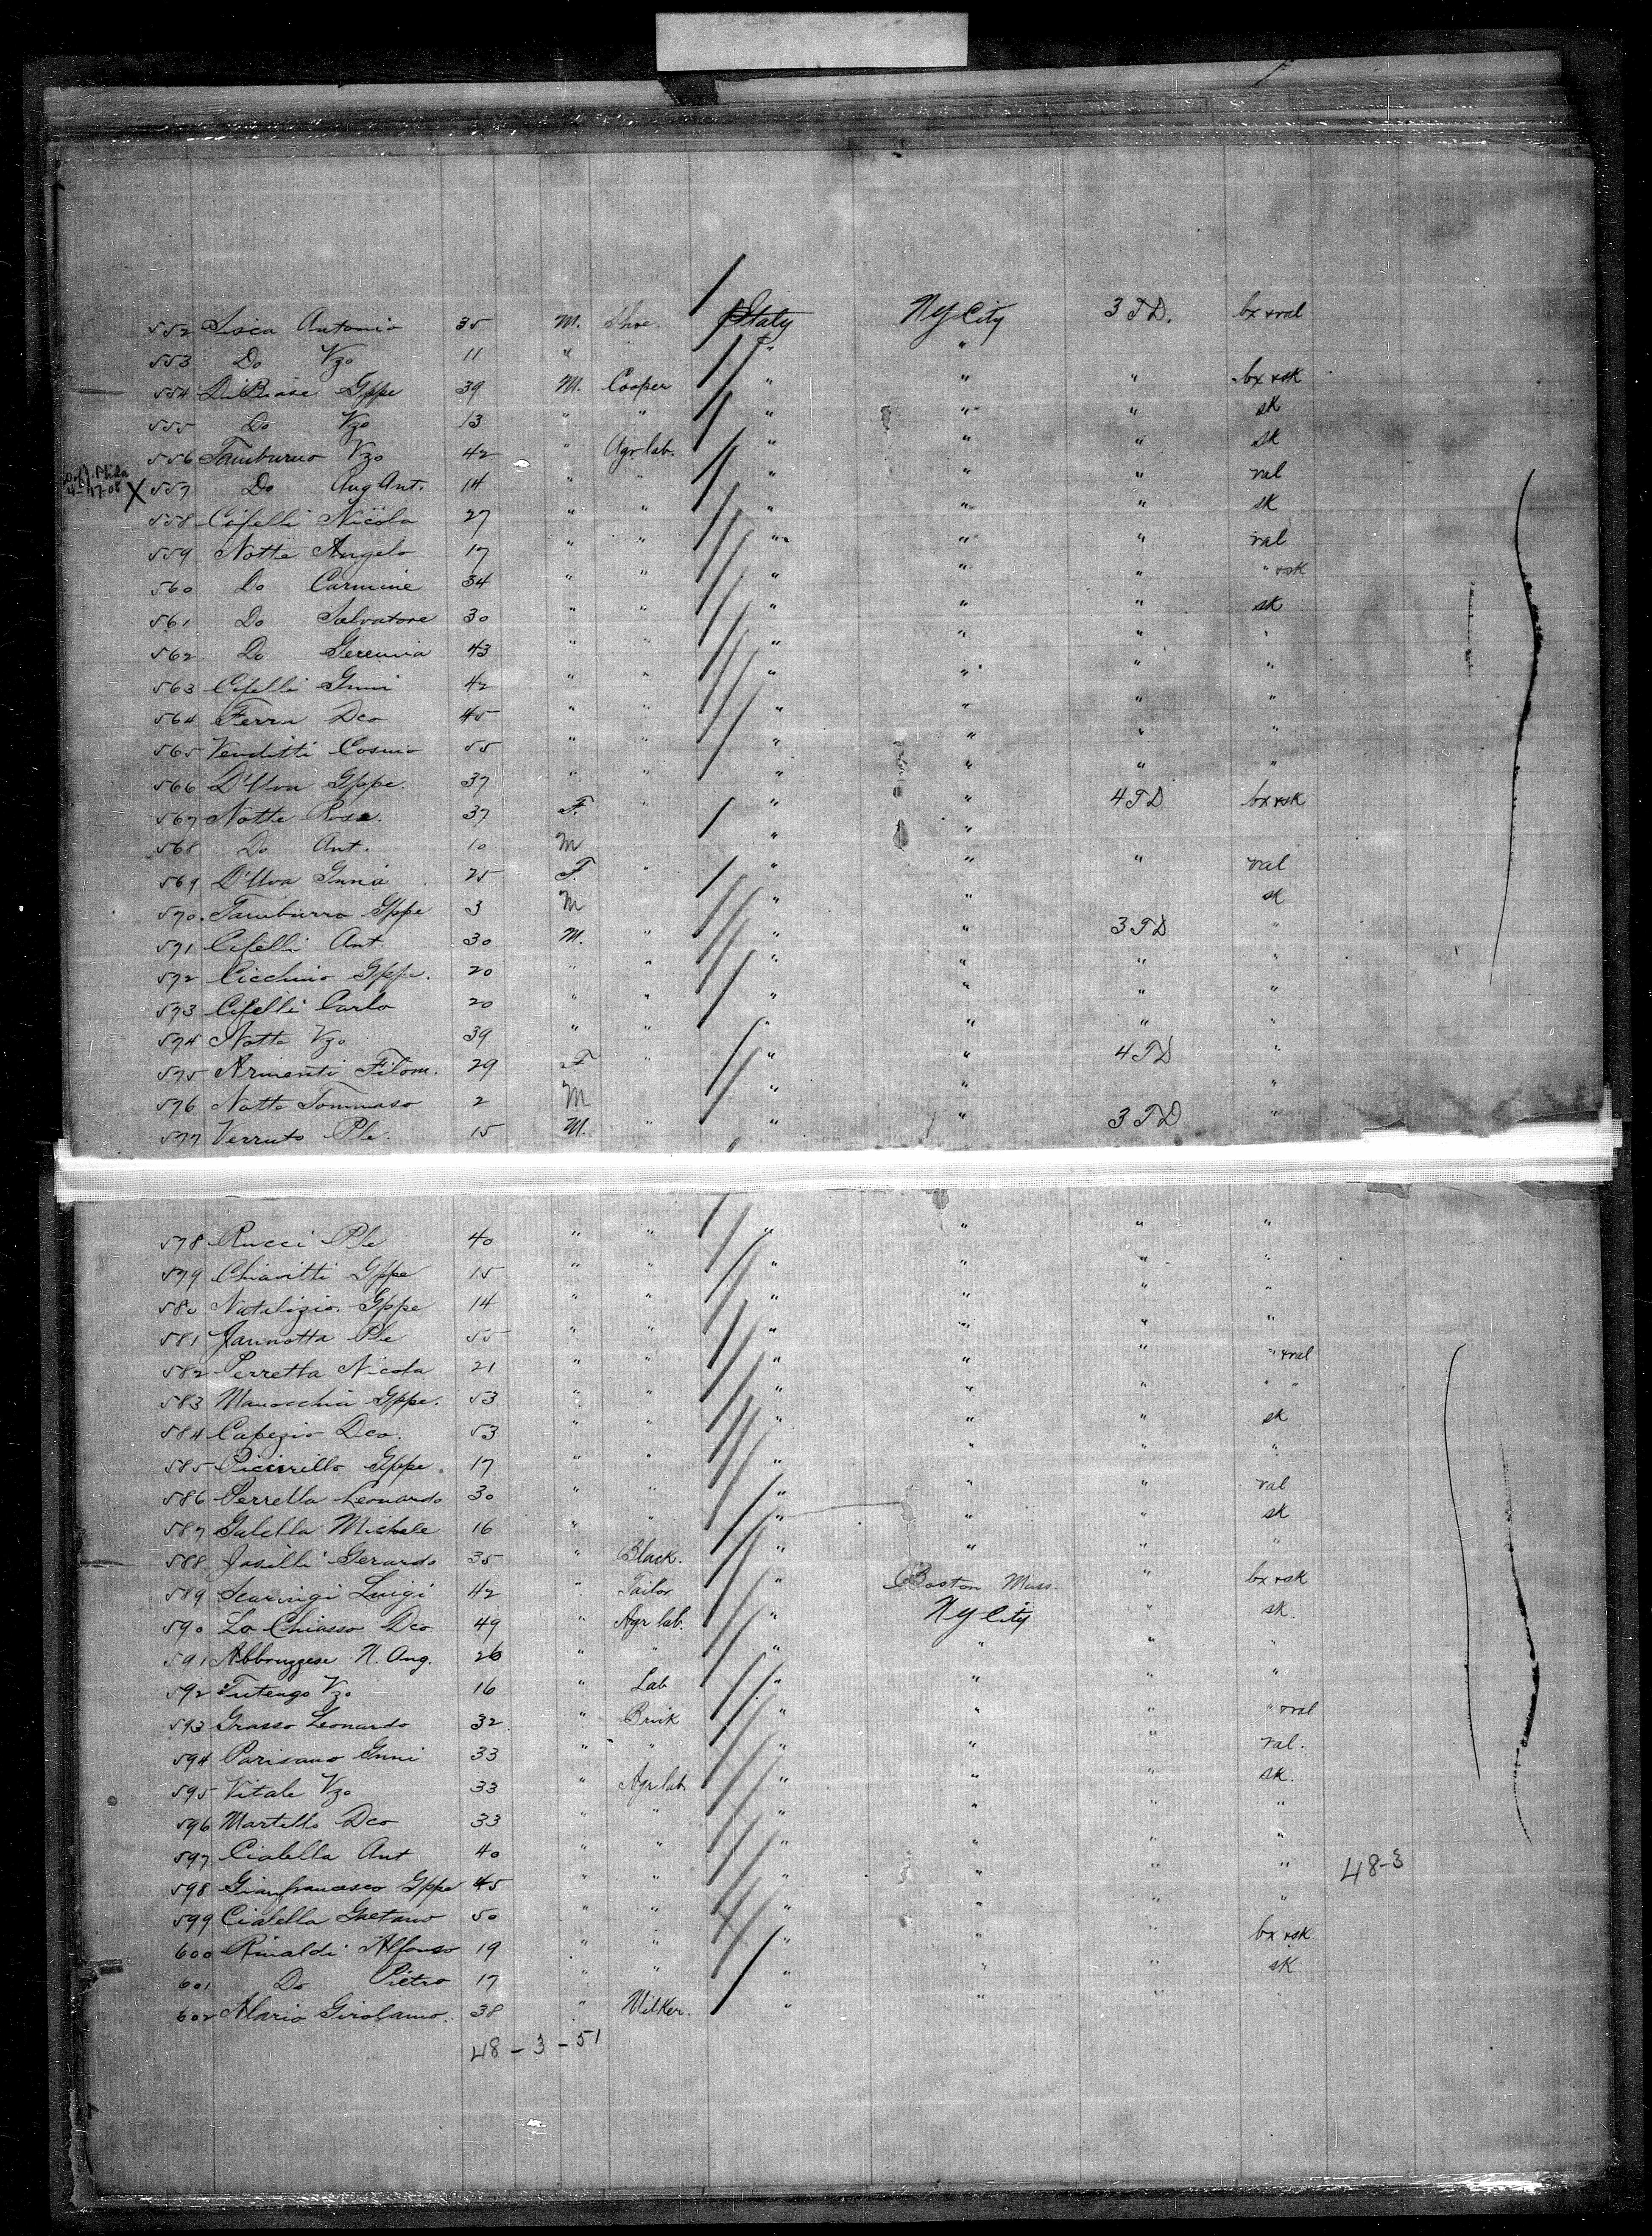 552 Lisca Antonio 35 M. Shoe. Italy NY City 3 T D. bx & val
553 Do Vzo 11 " " "
554 DiBiase Gppe 39 M. Cooper " " " bx & sk
555 Do Vzo 13 " " " " " sk
556 Tamburro Vzo 42 " Agr lab. " " " sk
X 557 Do Ang Ant. 14 " " " " " val
558 Cifelli Nicola 27 " " " " " sk
559 Notte Angelo 17 " " " " " val
560 Do Carmine 34 " " " " " " & sk
561 Do Salvatore 30 " " " " " sk
562 Do Geremia 43 " " " " " "
563 Cifelli Gnni 42 " " " " " "
564 Ferra Dco 45 " " " " " "
565 Venditti Cosmo 55 " " " " " "
566 D'Uva Gppe. 37 " " " " " "
567 Notte Rosa. 37 F. " " " 4 T D bx & sk
568 Do Ant. 10 M " "
569 D'Uva Gnna 25 F. " " " " val
570. Tamburro Gppe 3 M " " sk
571 Cifelli Ant. 30 M. " " " 3 T D "
572 Cicchino Gppe. 20 " " " " " "
573 Cifelli Carlo 20 " " " " " "
574 Notte Vzo 39 " " " " " "
575 Armenti Filom. 29 F " " " 4 T D "
576 Notte Tommaso 2 M " " "
577 Verruto Ple. 15 M. " " " 3 T D "
578 Rucci Ple 40 " " " " " "
579 Chiavitti Gppe 15 " " " " " "
580 Natalizio. Gppe 14 " " " " " "
581 Jannotta Ple 55 " " " " " "
582 Perretta Nicola 21 " " " " " " & val
583 Manocchia Gppe. 53 " " " " " " "
584 Capezio Dco. 53 " " " " " sk
585 Picirillo Gppe. 17 " " " " " "
586 Perrella Leonardo 30 " " " " " val
587 Galella Michele 16 " " " " " sk
588 Jasilli Gerardo 35 " Black. " " " "
589 Scaringi Luigi 42 " Tailor " Boston Mass. " bx & sk
590 Lo Chiasso Dco 49 " Agr lab. " NY City " sk.
591 Abbruzzese N. Ang. 26 " " " " " "
592 Tutengo Vzo 16 " Lab " " " "
593 Grasso Leonardo 32 " Brick " " " " & val
594 Parisano Gnni 33 " " " " " val.
595 Vitale Vzo 33 " Agr lab " " " sk.
596 Martello Dco 33 " " " " " "
597 Cialella Ant 40 " " " " " "
598 Gianfrancesco Gppe 45 " " " " " " 48-3
599 Cialella Gaetano 50 " " " " " "
600 Rinaldi Alfonso 19 " " " " " bx & sk
601 Do Pietro 17 " " " " " sk
602 Alario Girolamo. 38 " Milker. " " " "
48 - 3 - 51